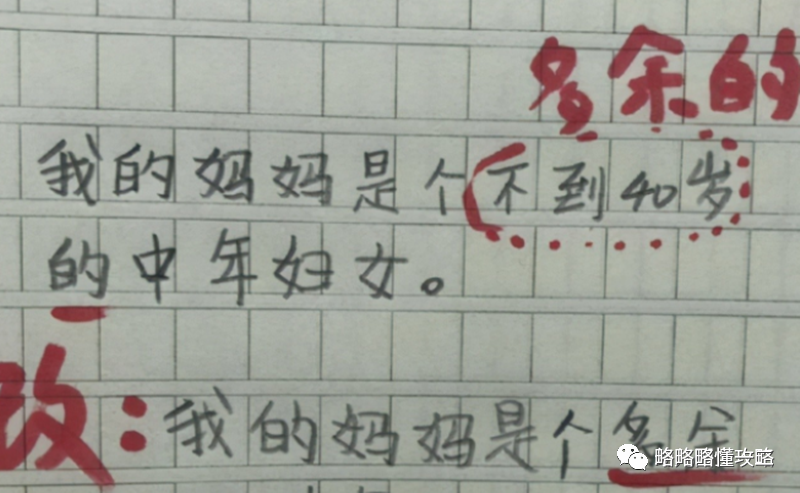 多余的
我的妈妈是个不到40岁
的中年妇女。
改：我的妈妈是个多余
略略略懂攻略